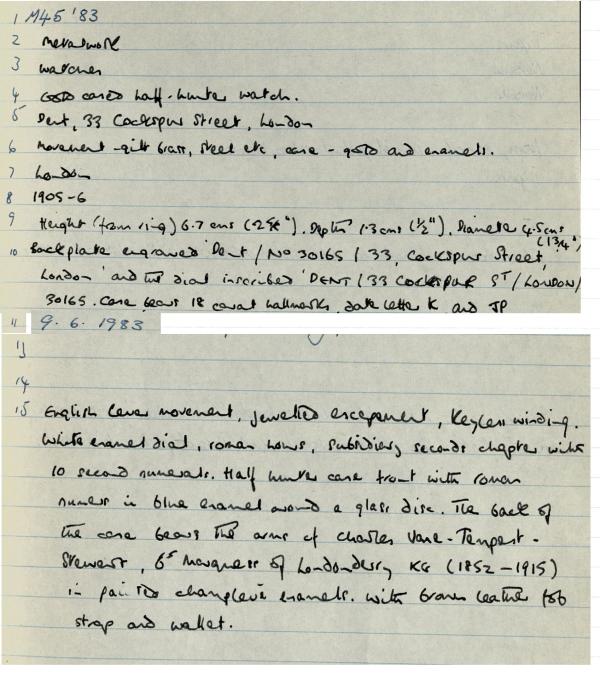 1 M45 '83
2 Metalwork
3 Watches
4 Gold cased half-hunter watch.
5 Dent, 33 Cockspur Street, London
6 Movement - gilt brass, steel etc, case - gold and enamels.
7 London
8 1905-6
9 Height (from ring) 6.7 cms (2⅝"). Depth 1.3 cms (½"). Diameter 4.5 cms (1¾")
10 Backplate engraved 'Dent / No 30165 / 33, Cockspur Street,
London' and the dial inscribed 'DENT / 33 COCKSPUR ST / LONDON /
30165. Case bears 18 carat hallmarks, date letter K and JP
11 9. 6. 1983
13
14
15 English lever movement, jewelled escapement, keyless winding.
White enamel dial, roman hours, subsidiary seconds chapter with
10 second numerals. Half hunter case front with roman
numers in blue enamel around a glass disc. The back of
the case bears the arms of Charles Vane-Tempest-
Stewart, 6th Marquess of Londonderry KG (1852-1915)
in painted champlevé enamels. With brown leather fob
strap and wallet.